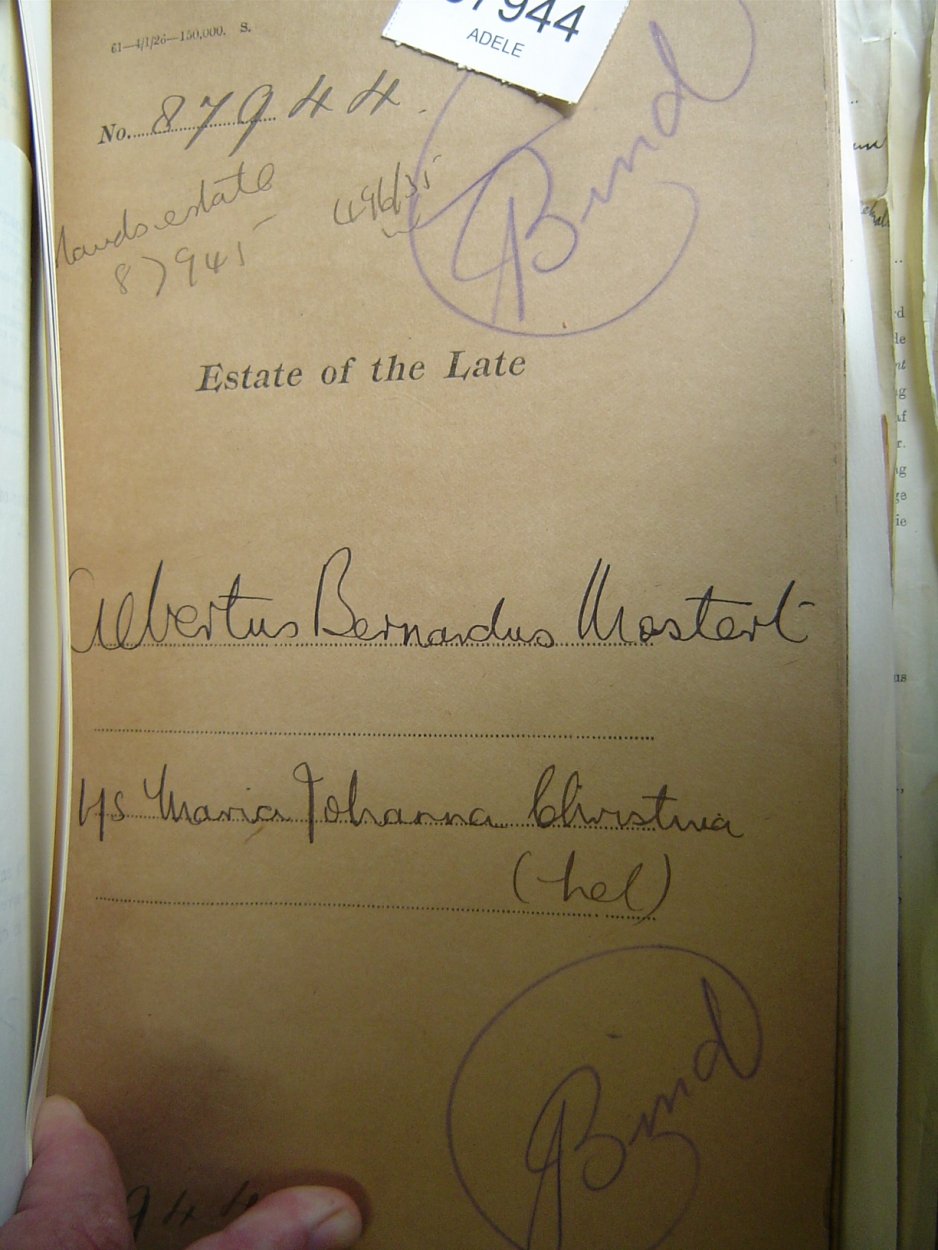 61—4/1/26—150,000. S.
7944
ADELE
No. 87944.
Bind
estate
87945
Estate of the Late
Albertus Bernardus Mostert
Maria Johanna Christina
(hel)
Bind
944